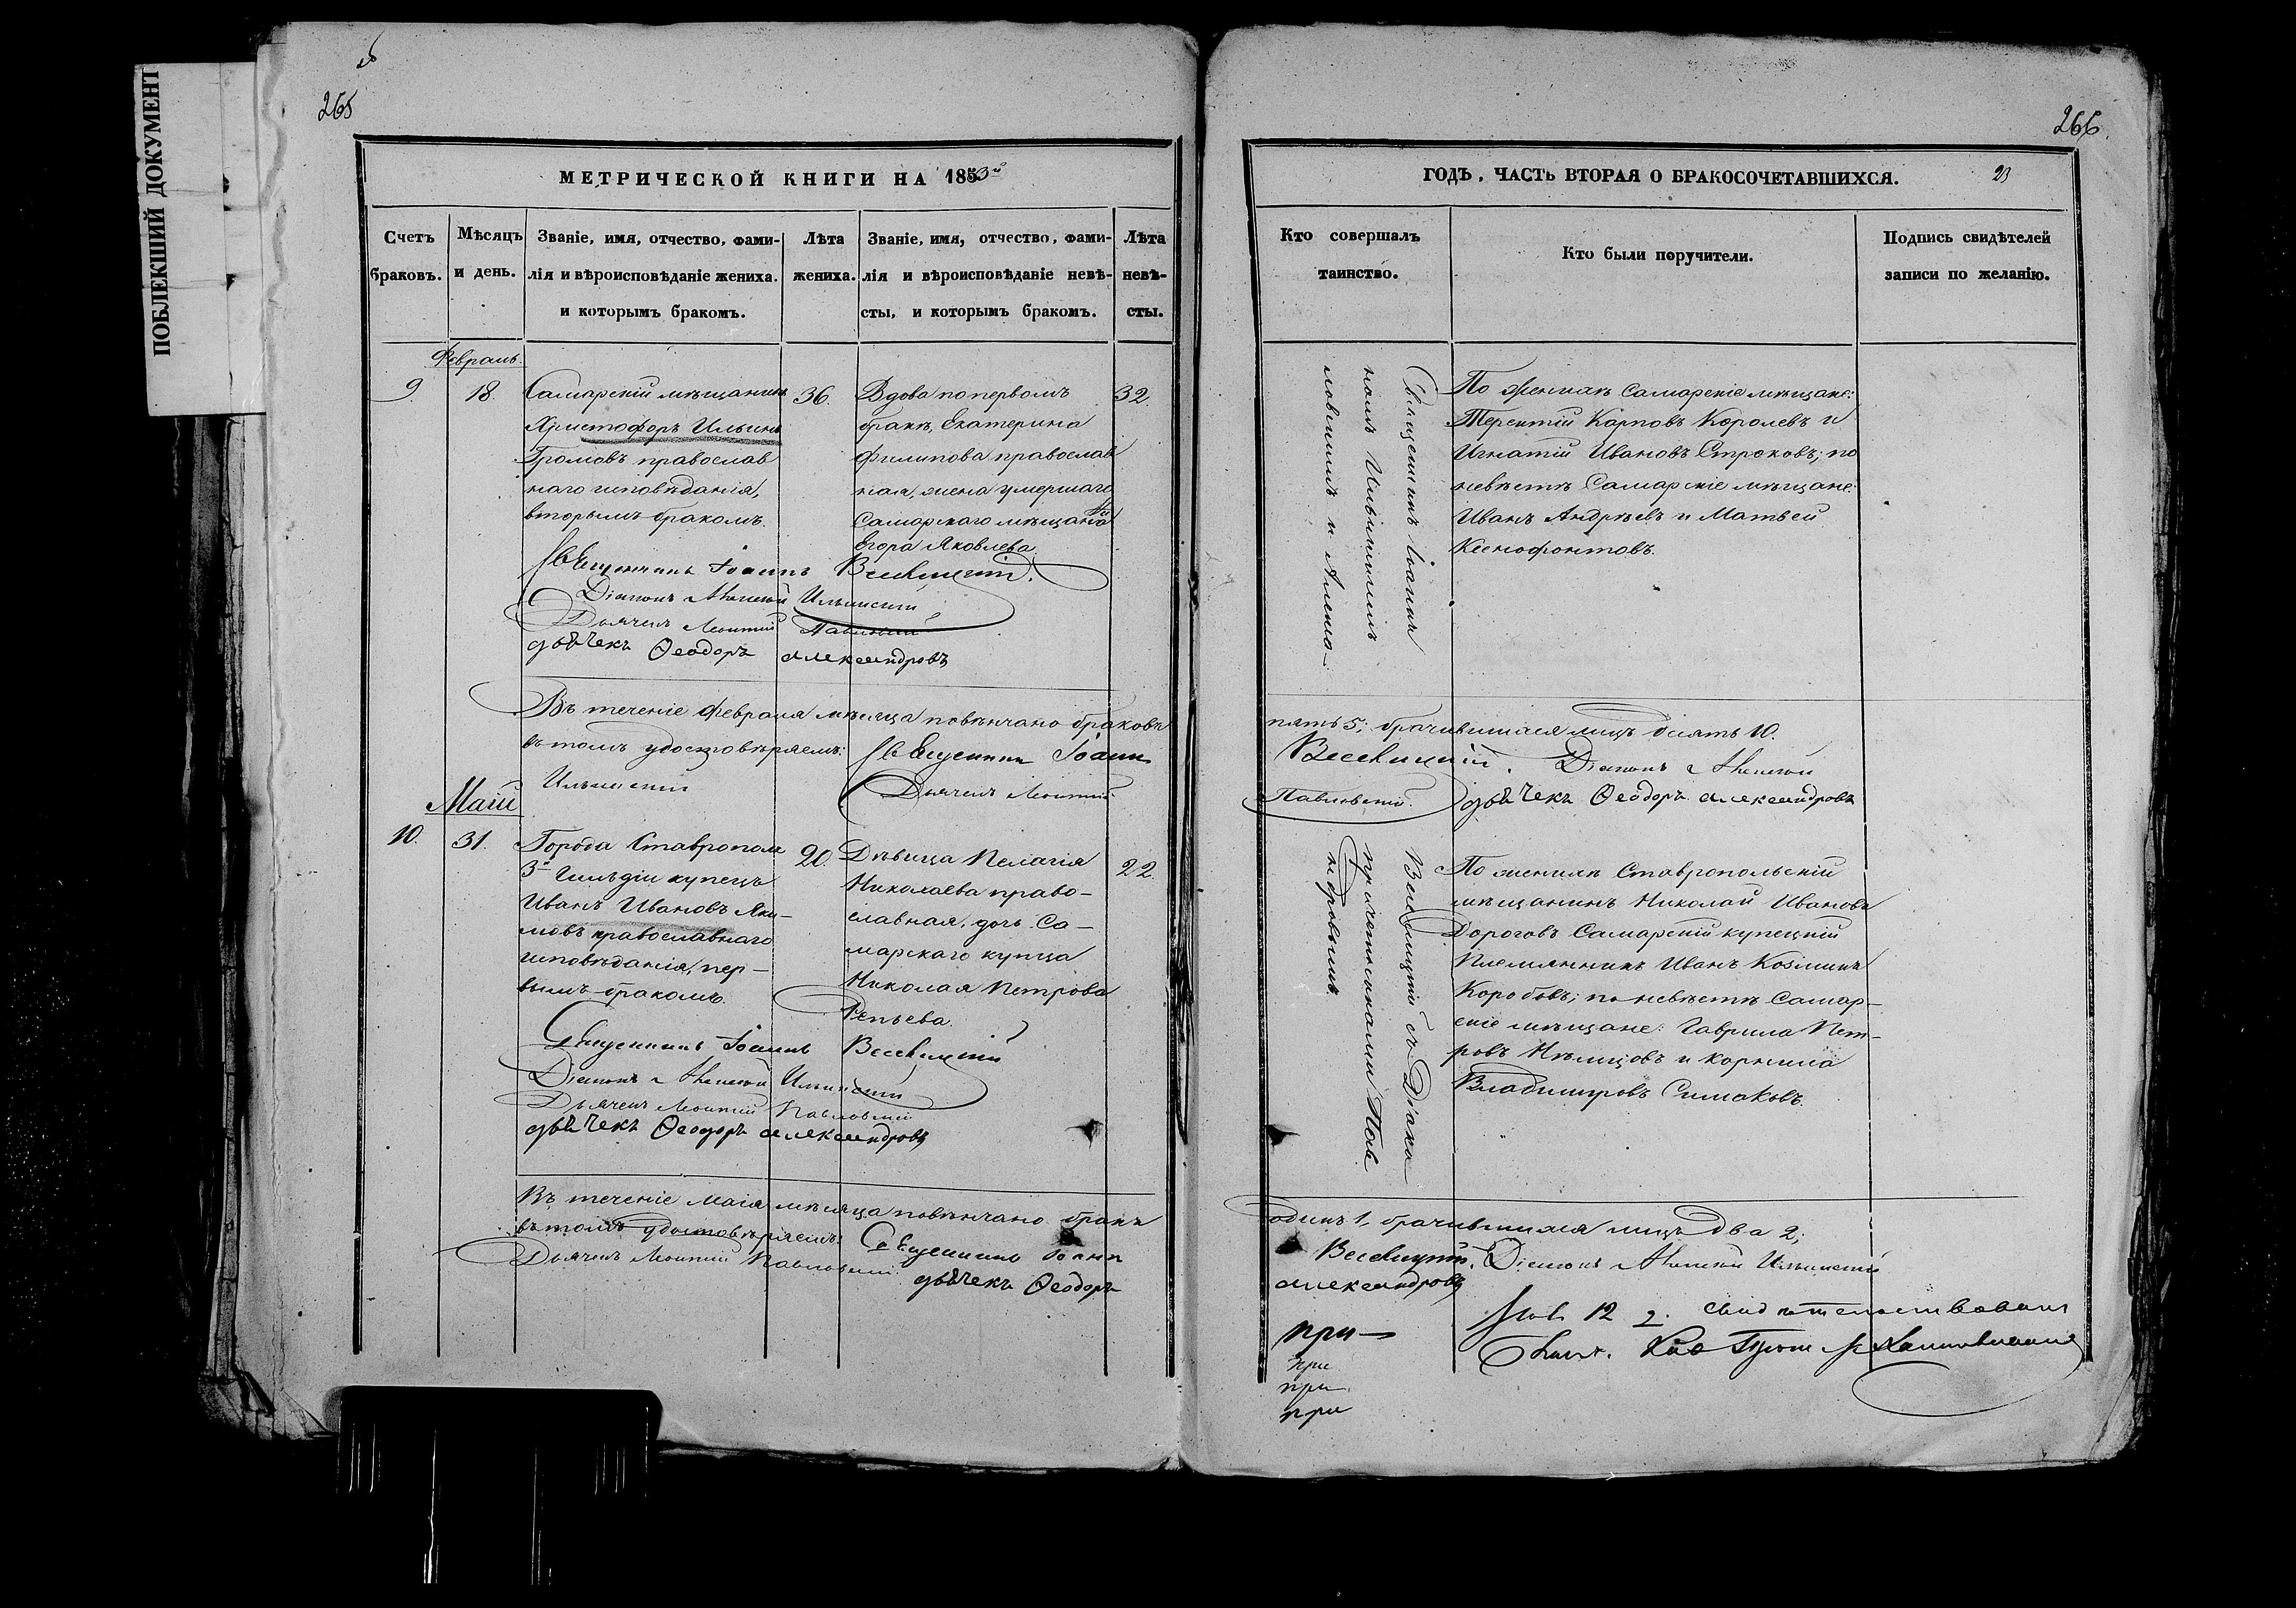 ПОБЛЕКШИЙ ДОКУМЕНТ
265
МЕТРИЧЕСКОЙ КНИГИ НА 1853й
Счетъ браковъ.
Мѣсяцъ и день.
Званіе, имя, отчество, фами-
лія и вѣроисповѣданіе жениха.
и которымъ бракомъ.
Лѣта жениха.
Званіе, имя, отчество, фами-
лія и вѣроисповѣданіе невѣ-
сты, и которымъ бракомъ.
Лѣта невѣ-
сты.
Февраль.
9.
18.
Самарскій мѣщанинъ
Христофоръ Ильинъ
Громовъ православ
наго исповѣданія,
вторымъ бракомъ.
36.
Вдова по первомъ
бракѣ, Екатерина
Филипова православ
ная, жена умершаго
Самарскаго мѣщанина
Егора Яковлева.
32.
Священникъ Іоаннъ
Діаконъ Алексей Ильинскій
Дьячекъ Леонтій Павловскій
дьячекъ Ѳеодоръ александровъ
Въ теченіе Февраля мѣсяца повѣнчано браковъ
въ томъ удостовѣряемъ: Священникъ Іоаннъ
Ильинскій Дьячекъ Леонтій
Маій
10.
31.
Города Ставрополя
3й гильдіи купецъ
Иванъ Ивановъ Яки-
мовъ православнаго
исповѣданія, пер-
вымъ бракомъ.
20.
Дѣвица Пелагія
Николаева право-
славная, дочь Са-
марскаго купца
Николая Петрова
Репьева.
22.
Священникъ Іоаннъ
Діаконъ Алексей Ильинскій
Дьячекъ Леонтій Павловскій
дьячекъ Ѳеодоръ александровъ
Въ теченіе Маія мѣсяца повѣнчано бракъ
въ томъ удостовѣряемъ: Священникъ Іоаннъ
Дьячекъ Леонтій Павловскій дьячекъ Ѳеодоръ
266.
ГОДЪ, ЧАСТЬ ВТОРАЯ О БРАКОСОЧЕТАВШИХСЯ.
23
Кто совершалъ
таинство.
Кто были поручители.
Подпись свидѣтелей
записи по желанію.
Священникъ Іоаннъ
По женихѣ Самарскіе мѣщане:
Терентій Карповъ Королевъ и
Игнатій Ивановъ Строковъ; по
невѣстѣ Самарскіе мѣщане:
Иванъ Андреевъ и Матвей
Ксенофонтовъ.
пять 5; брачившихся лицъ десять 10.
Діаконъ Алексей
Павловскій. дьячекъ Ѳеодоръ александровъ
съ Діако
причетниками Пав
По женихѣ Ставропольскій
мѣщанинъ Николай Ивановъ
Дороговъ Самарскій купецкій
племянникъ Иванъ Козминъ
Коробовъ; по невѣстѣ Самар-
скіе мѣщане: Гаврила Пет-
ровъ Нѣмцовъ и Корнила
Владимировъ Симаковъ.
одинъ 1, брачившихся лицъ два 2;
Діаконъ Алексей Ильинскій
александровъ
12
свидѣтельствовалъ
при
при
при
при